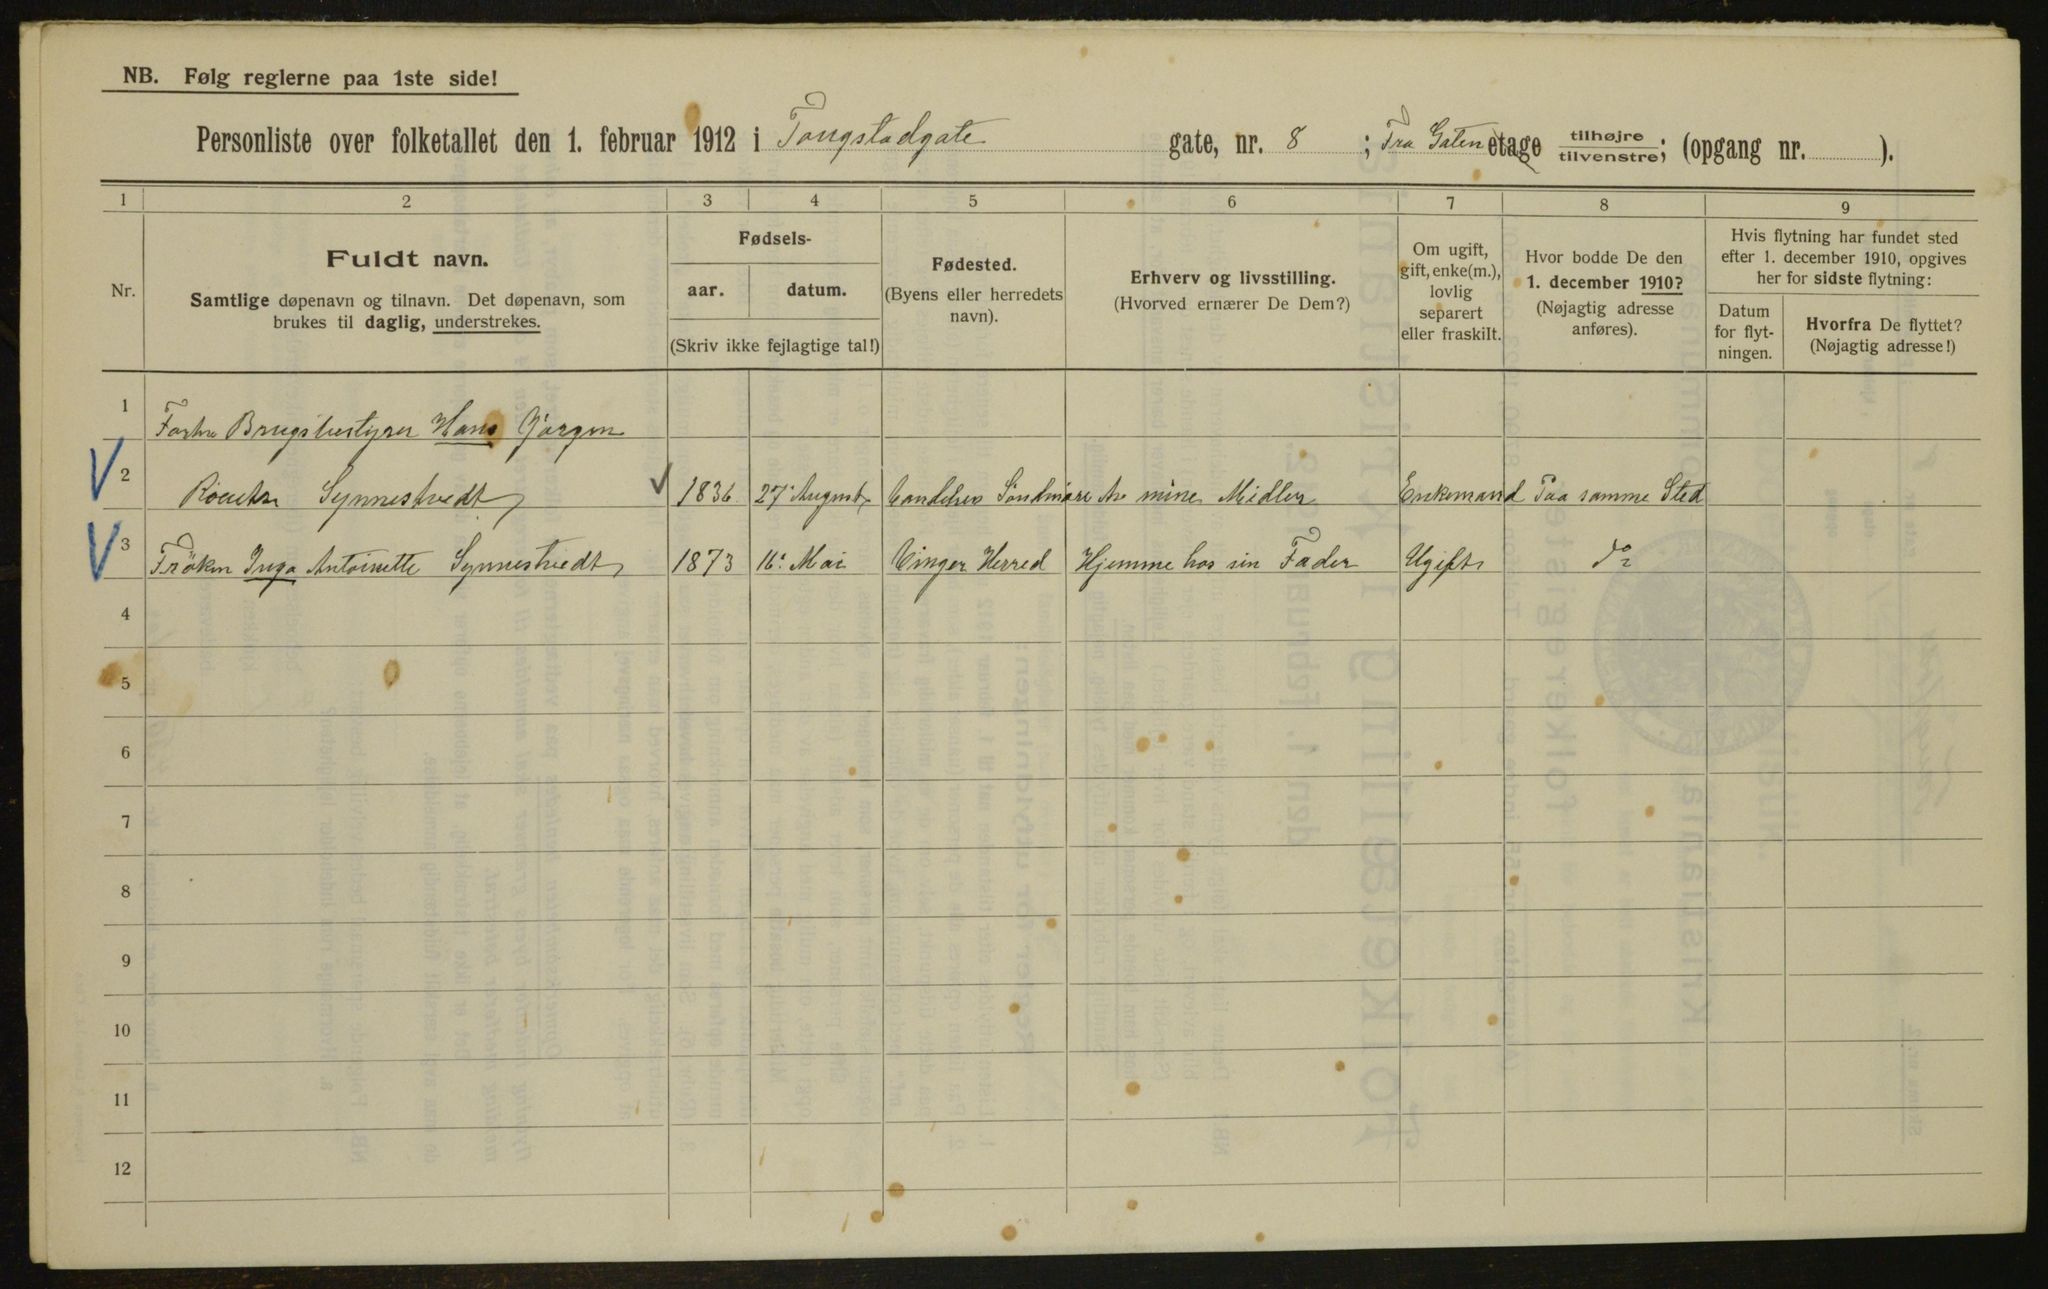 NB. Følg reglerne paa 1ste side!
Personliste over folketallet den 1. februar 1912 i Tougstadgate gate, nr. 8 ; Fra Gaten etage tilhøjre/tilvenstre; (opgang nr. ).
1 2 3 4 5 6 7 8 9
Nr.
Fuldt navn.
Samtlige døpenavn og tilnavn. Det døpenavn, som
brukes til daglig, understrekes.
Fødsels-
aar. datum.
(Skriv ikke fejlagtige tal!)
Fødested.
(Byens eller herredets
navn).
Erhverv og livsstilling.
(Hvorved ernærer De Dem?)
Om ugift,
gift, enke(m.),
lovlig
separert
eller fraskilt.
Hvor bodde De den
1. december 1910?
(Nøjagtig adresse
anføres).
Hvis flytning har fundet sted
efter 1. december 1910, opgives
her for sidste flytning:
Datum
for flyt-
ningen.
Hvorfra De flyttet?
(Nøjagtig adresse!)
1 Brugsbestyrer Hans Jørgen
2 Synnestvedt 1836 27. August Søndmøre Av mine Midler Enkemand Paa samme Sted
3 Frøken Inga Antoinette Synnestvedt 1873 16. Mai Vinger Herred Hjemme hos sin Fader Ugift do
4
5
6
7
8
9
10
11
12